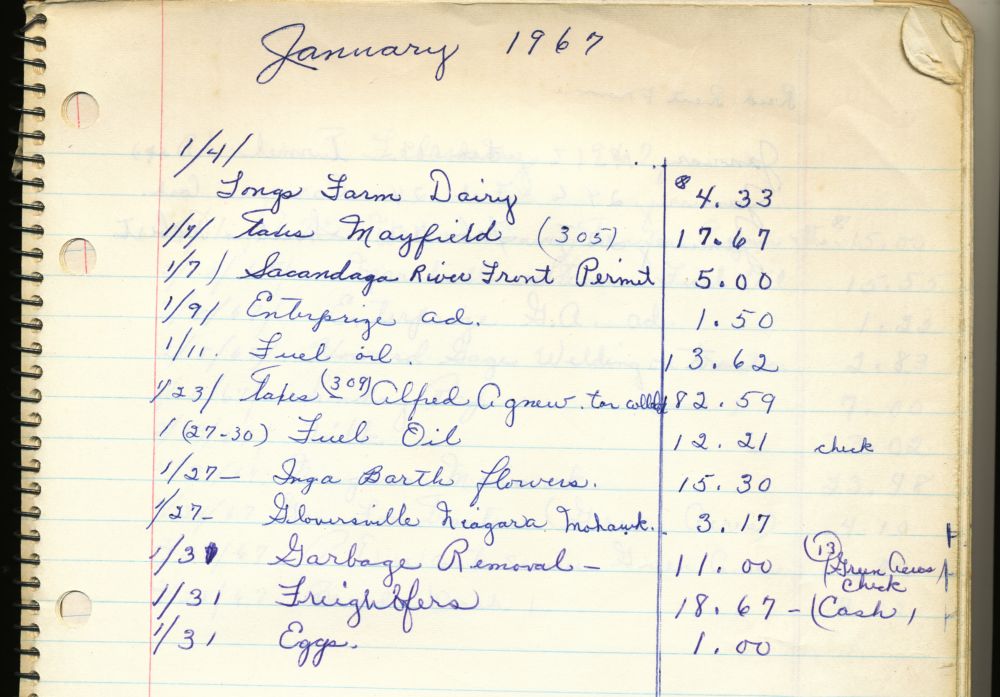 January 1967
1/4/
Longs Farm Dairy $4.33
1/7/ Taxes Mayfield (305) 17.67
1/7/ Sacandaga River Front Permit 5.00
1/9/ Enterprize ad. 1.50
1/11. Fuel oil. 13.62
1/23/ Taxes (309) Alfred Agnew. tax collect 82.59
1/(27-30) Fuel Oil 12.21 check
1/27- Inga Barth flowers. 15.30
1/27- Gloversville Niagara Mohawk. 3.17
1/31 Garbage Removal - 11.00 (13) Green Acres
check
1/31 Freighofers 18.67 - (Cash)
1/31 Eggs. 1.00